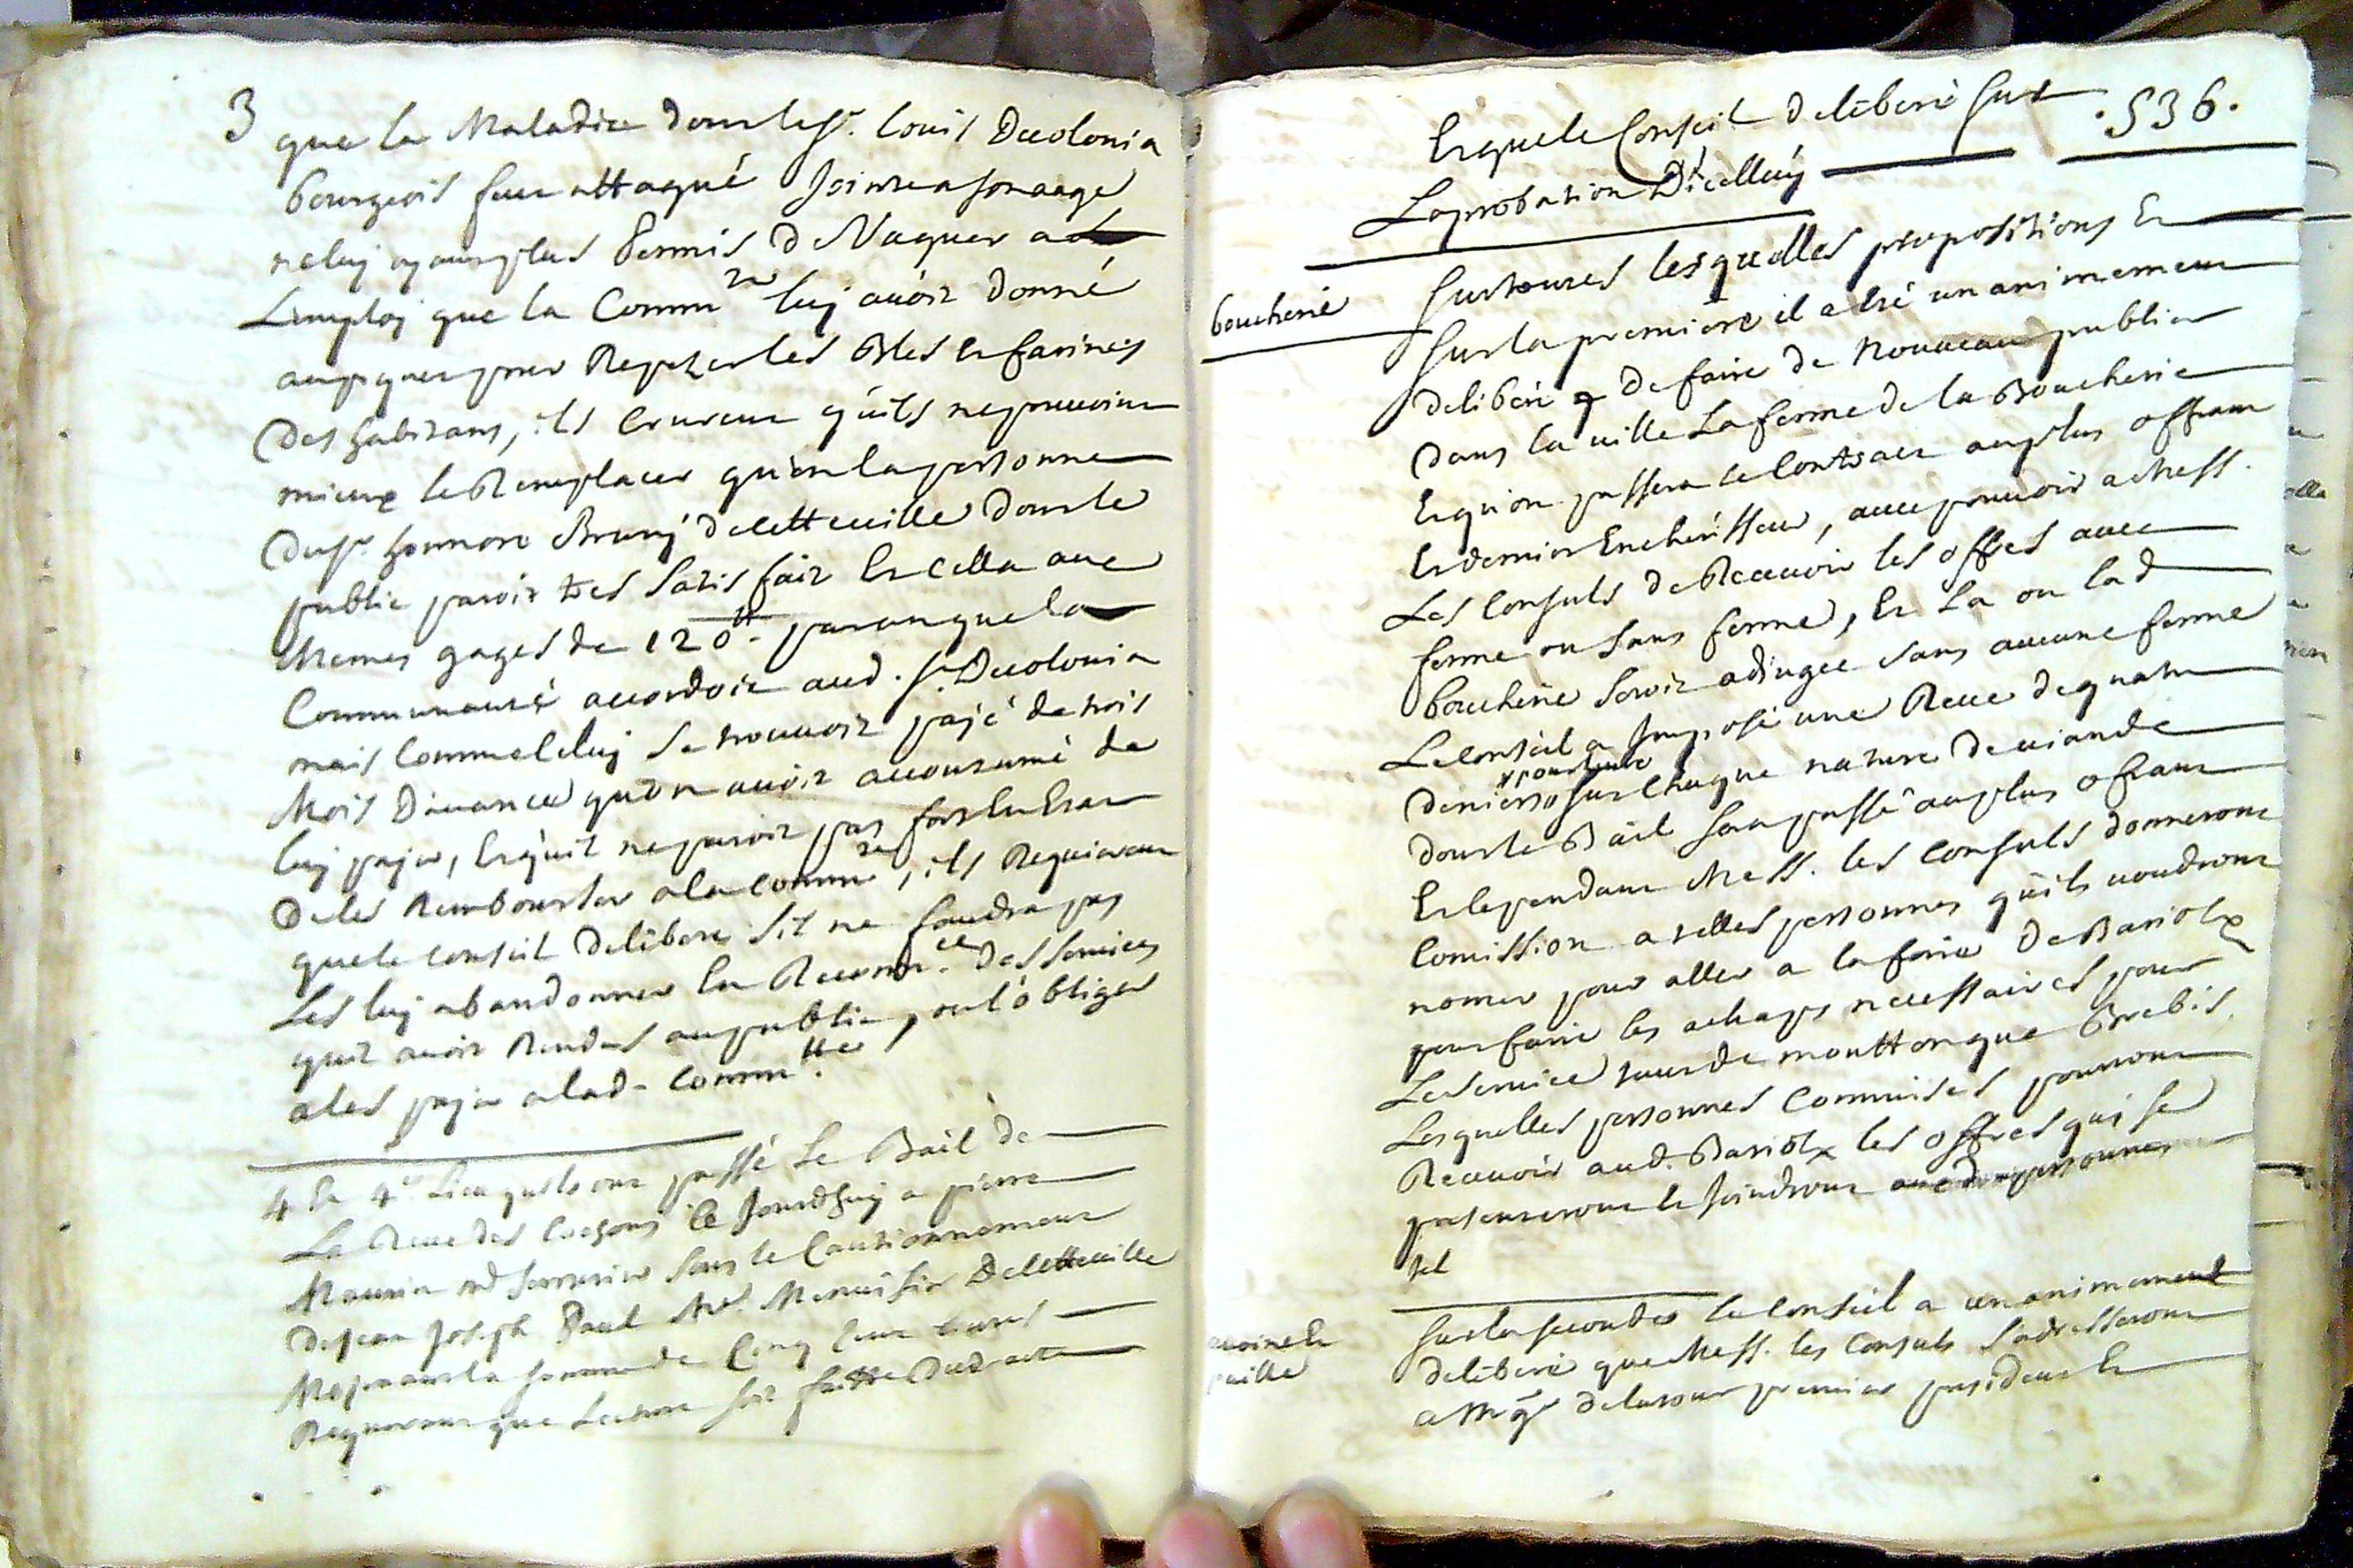 3 que la Maladie dont le Sr. Louis Decolonia
bourgeois feut attaqué jointe a son aage
ne luy ayant plus Permis de Vaquer a
L'employ que la Commté luy avoit donné
au piquet pour Repezer les Bles et farines
Des habitans, ils Crurent qu'ils ne pouvoint
mieux le Remplacer qu'en la personne
du Sr. honnoré Bruny de cette ville dont le
public paroit tres Satisfait Et cella aux
Memes gages de 120tt. par an que la
Communauté accordoit aud. Sr. Decolonia
mais Comme Celuy se trouvoit payé de trois
Mois D'avance qu'on avoit accoutumé de
luy payer, Et qu'il ne paroit pas fort En Estat
De les Rembourser a la commté, ils Requierent
que le conseil Delibere s'il ne faudra pas
Les luy abandonner En Reconn.ce Des services
qu'il avoit Rendus au public, ou l'obliger
a les payer a lad. Commté.
4 Et 4o. Lieu qu'ils ont passé Le Bail de
La Reve des Cochons ce Jourd'huy a pierre
Maurin md serrurier sous le Cautionnement
de Jean Joseph Paul Me. Menuisier De cette ville
Moyenant la somme de Cinq Cent livres
Requerant que Lecture soit faitte Dud. acte
.536.
Et que le Conseil Delibere sur
L'aprobation D'icelluy
Sur toutes lesquelles propositions Et
boucherie
Sur la premiere il a Eté unanimement
deliberé de faire de Nouveau publier
Dans la ville La ferme de la Boucherie
Et qu'on passera le Contract au plus offrant
Et dernier Encherisseur, avec pouvoir a Mess.
Les Consuls de Recevoir les offres avec
ferme ou sans ferme, Et La ou lad
boucherie seroit adjugee sans aucune ferme
Le conseil a Imposé une Reve de quatre
pour livre
deniers sur Chaque nature de viande
dont le Bail sera passé au plus ofrant
Et Cependant Mess. les Consuls donneront
Comission a telles personnes qu'ils voudront
nomer pour aller a la foire de Bariols
pour faire les achapts necessaires pour
Le service tant de moutton que Brebis
Lesquelles personnes Commises pourront
Recevoir aud. Bariols les offres qui se
presenteront
Sur la seconde le Conseil a unanimement
avoine Et
paille
deliberé que Mess. les Consuls s'adresseront
a Mgr delatour premier president Et